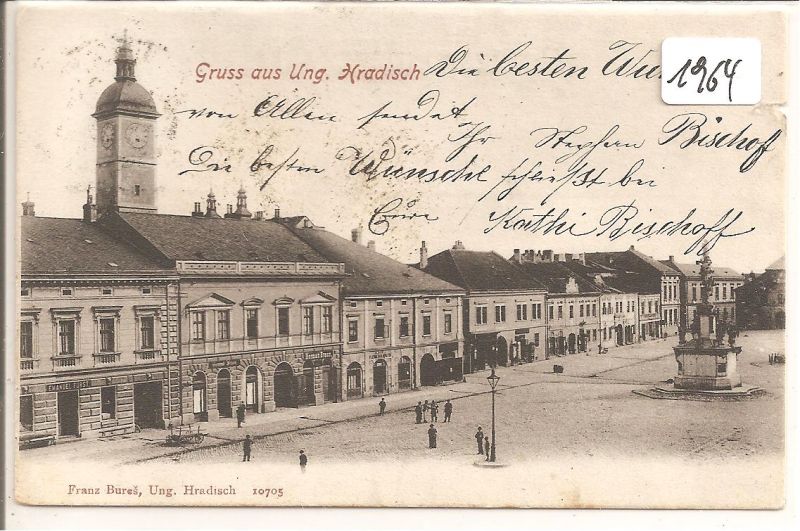 Gruss aus Ung. Hradisch Die besten
1964
von Allen sendet
Ihr Stephan Bischof
Die besten Wünsche schließt bei
Eure Kathi Bischoff
EMANUEL FÜRST
Franz Bureš, Ung. Hradisch 10705